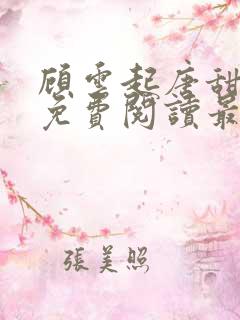 顾雲起唐甜
免費閱讀最
張美照